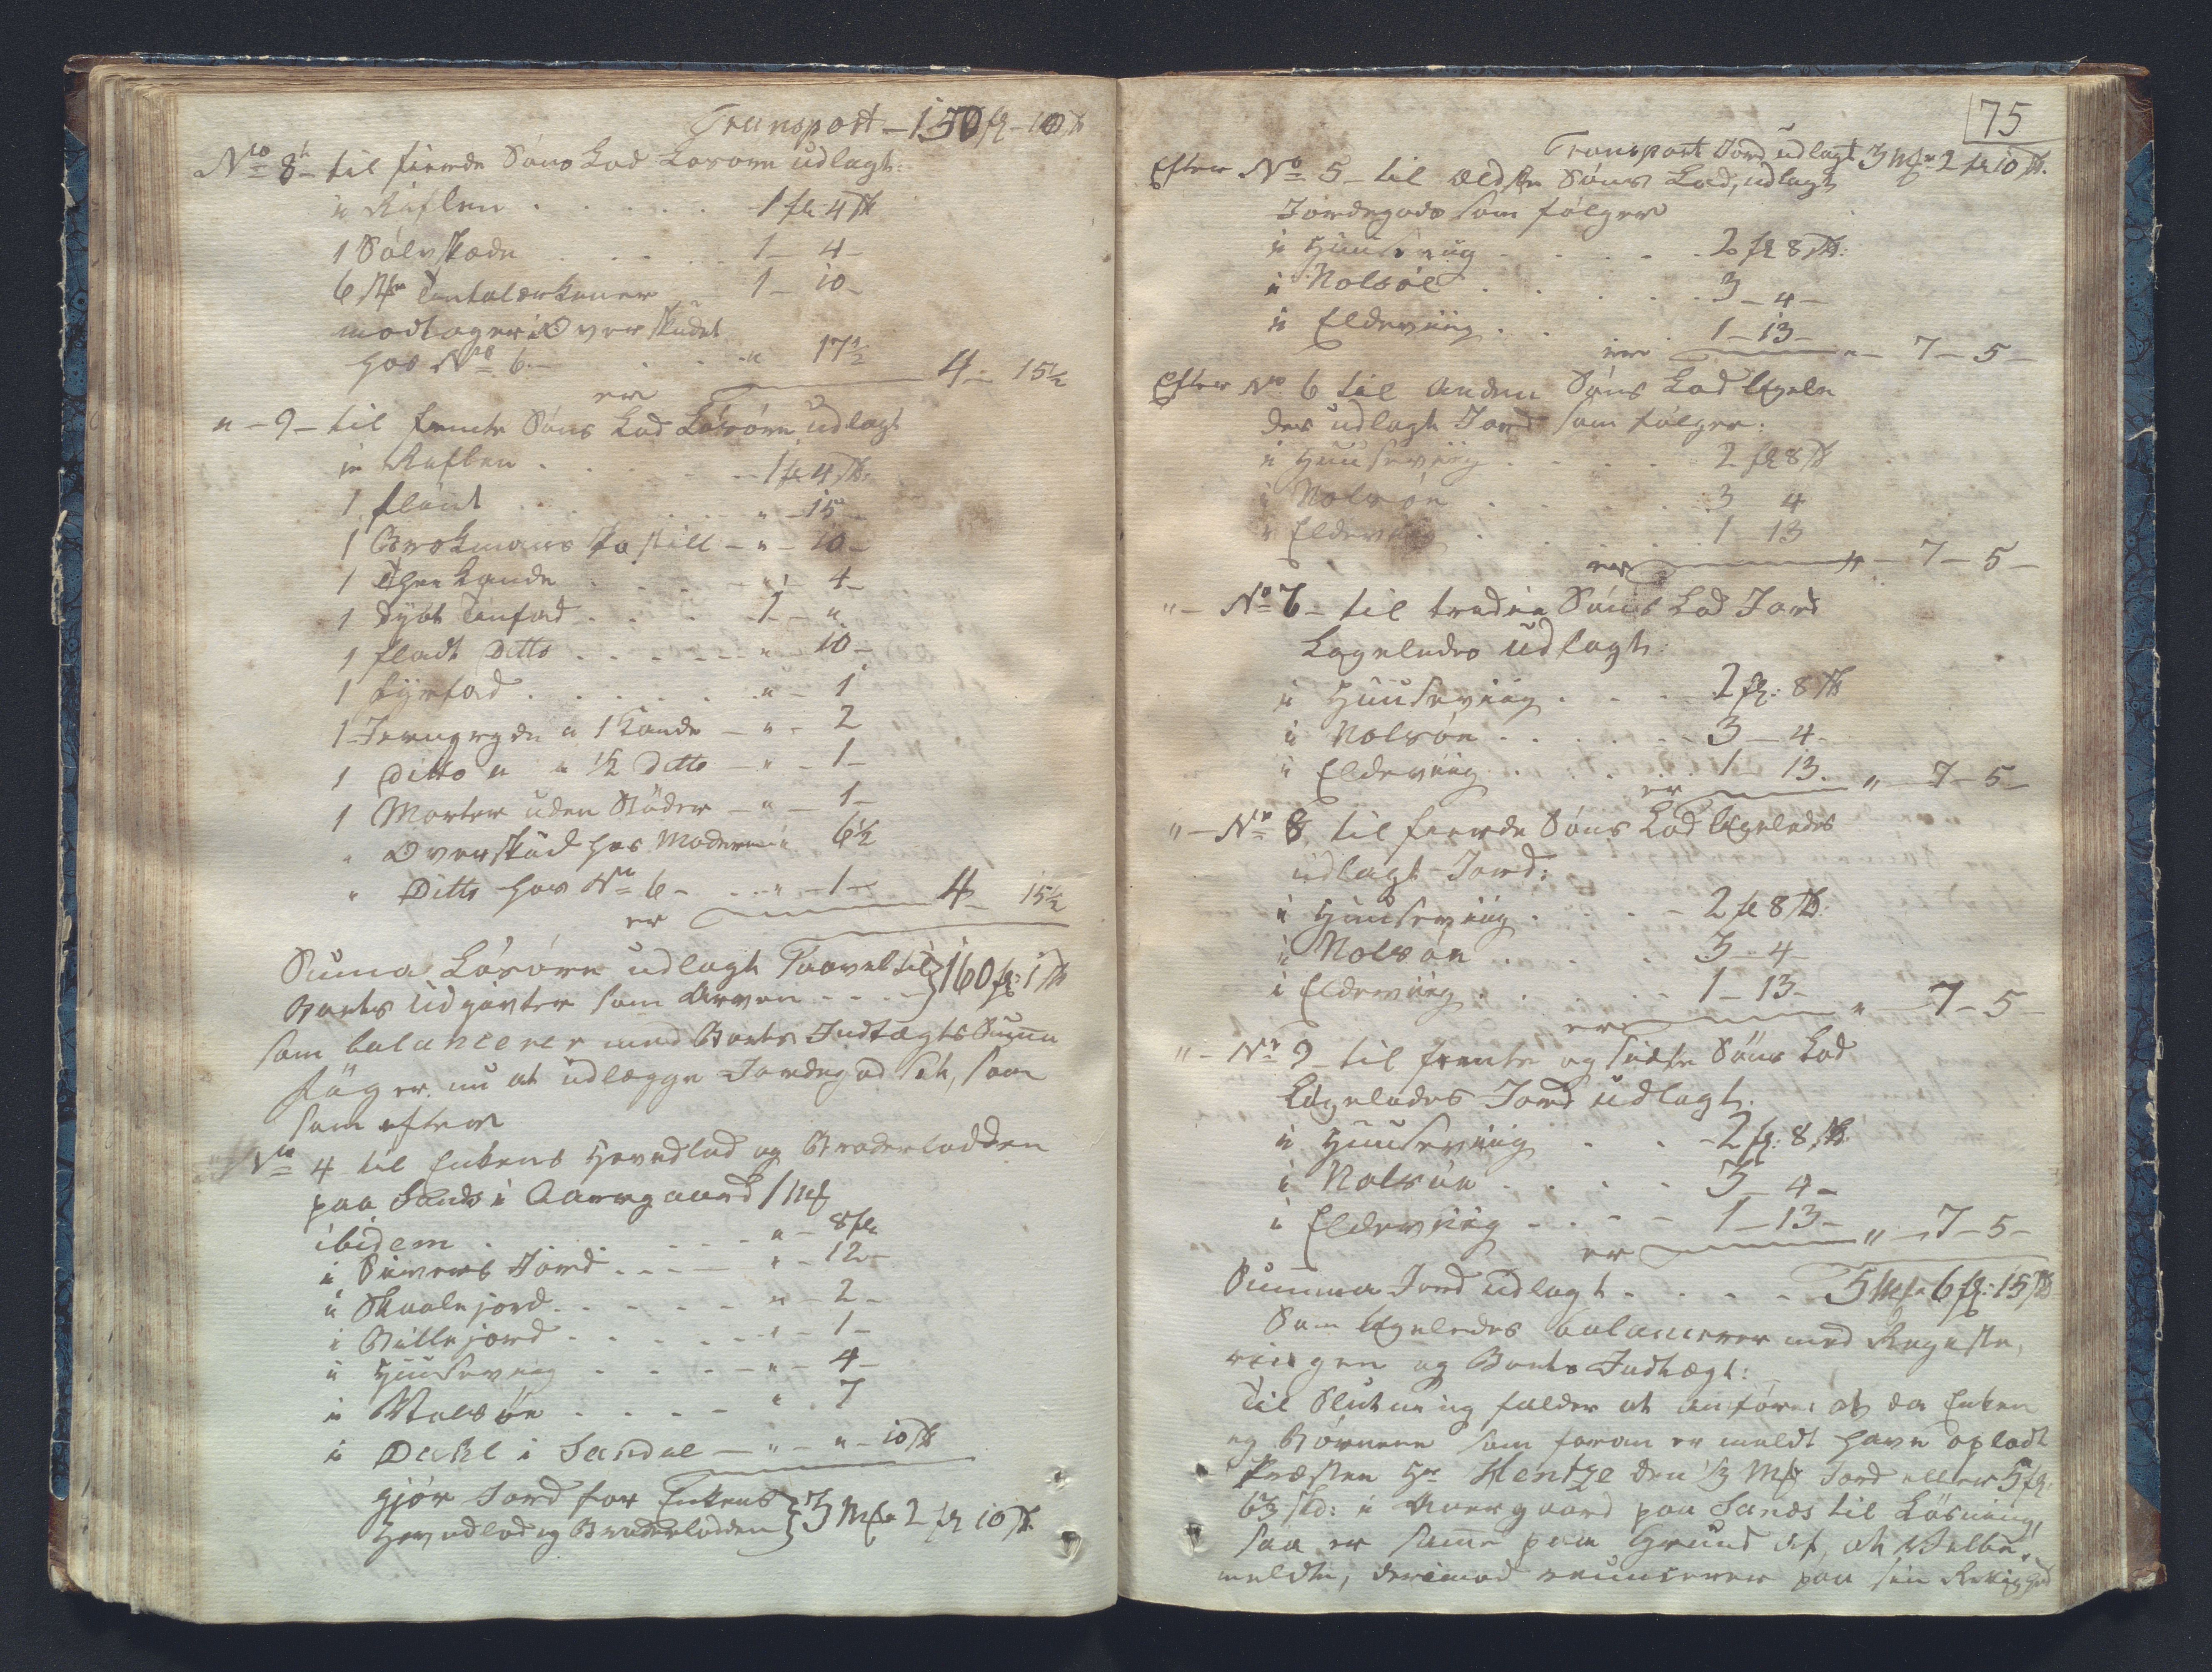 Transport - 150 fl - 10 ₰
No 8 - til fierde Søns Lod Løsøre udlagt:
i Kiflen . . . . . 1 fl 4 ₰
1 Sølvskede . . . . . 1 - 4 -
6 St: Tintalerkener 1 - 10 -
modtager i Overskudet
hos No 6. - . . . " 17½
er 4 - 15½
" - 9 - til femte Søns Lod Løsøre udlagt
i Kiflen . . . . 1 fl 4 ₰:
1 . . . . " - 15 -
1 Brokmans Postill - " - 10 -
1 Theekande . . . . " - 4 -
1 dybt Tinfad . . . . 1 - "
1 fladt Ditto . . . . . " 10 -
1 Fyrfad . . . . . . " - 1
1 Jerngryde a 1 Kande - " - 2
1 Ditto a " ½ Ditto - " - 1 -
1 Morter uden Støder - " - 1 -
" Overskud hos Moderen 6½
" Ditto hos No 6 - . . " - 1 -
er 4 - 15½
Suma Løsøre udlagt saavel til } 160 fl: 1 ₰
Boets Udgivter som Arven - - -
som balancerer med Boets Indtægts Suma
nu at udlægge Jordegodset, som
som efter
No 4 til Enkens Hovedlod og Broderlodden
paa Sands i Aaregaard 1 Mk
ibidem . . . . . " - 8 fl
i Sivers Jord . . . . " - 12 -
i Skaalejord . . . . . " - 2 -
i Billejord . . . . . " - 1 -
i Huusevig . . . . . " - 4 -
i Nolsøe . . . . " 7
i Dahl i Sandøe - " - " - 10 ₰
gjør Jord for Enkens
Hovedlod og Broderlodden } 3 Mk 2 fl 10 ₰.
75
Transport Jord udlagt 3 Mk 2 fl 10 ₰.
Efter No 5 - til ældste Søns Lod, udlagt
Jordegods som følger
i Huusevig . . . . 2 fl 8 ₰:
i Nolsøe . . . . . 3 - 4 -
i Eldeviig . . . 1 - 13 -
er " - 7 - 5 -
Efter No 6 til Anden Søns Lod ligele
des udlagt Jord som følger:
i Huuseviig . . . 2 fl 8 ₰
i Nolsøe . . . . 3 4
i Eldeviig . . . 1 13
er " - 7 - 5 -
" - No 7 - til tredie Søns Lod Jord
Ligeledes udlagt:
i Huuseviig . . . . 2 fl: 8 ₰
i Nolsøe . . . . . . 3 - 4 -
i Eldeviig . . . . . 1 - 13.
er " 7 - 5
" - No 8 til fierde Søns Lod ligeledes
udlagt Jord:
i Huuseviig . . . - 2 fl 8 ₰:
i Nolsøe . . . . 3 - 4 -
i Eldeviig . . . . . 1 - 13 -
er " 7 - 5 -
" - No 9 - til femte og sidste Søns Lod
Ligeledes Jord udlagt.
i Huuseviig . . . - 2 fl: 8 ₰.
i Nolsøe . . . . 3 - 4 -
i Eldeviig - . . - - 1 - 13 -
er " - 7 - 5 -
Summa Jord udlagt . . . . 5 Mk 6 fl: 15 ₰
Som ligeledes balancerer med Registe,
ringen og Boets Indtægt:
Til Slutning falder at anføre: at da Enken
og Børnene som foran er meldt have opladt
Præsten Hr Hentze den ⅓ Mk Jord eller 5 fl.
6⅔ skd: i Aaregaard paa Sands til Løsning,
saa er same paa Grund af, at Velbe,
meldte, derimod renuncerer paa sin Rettighed